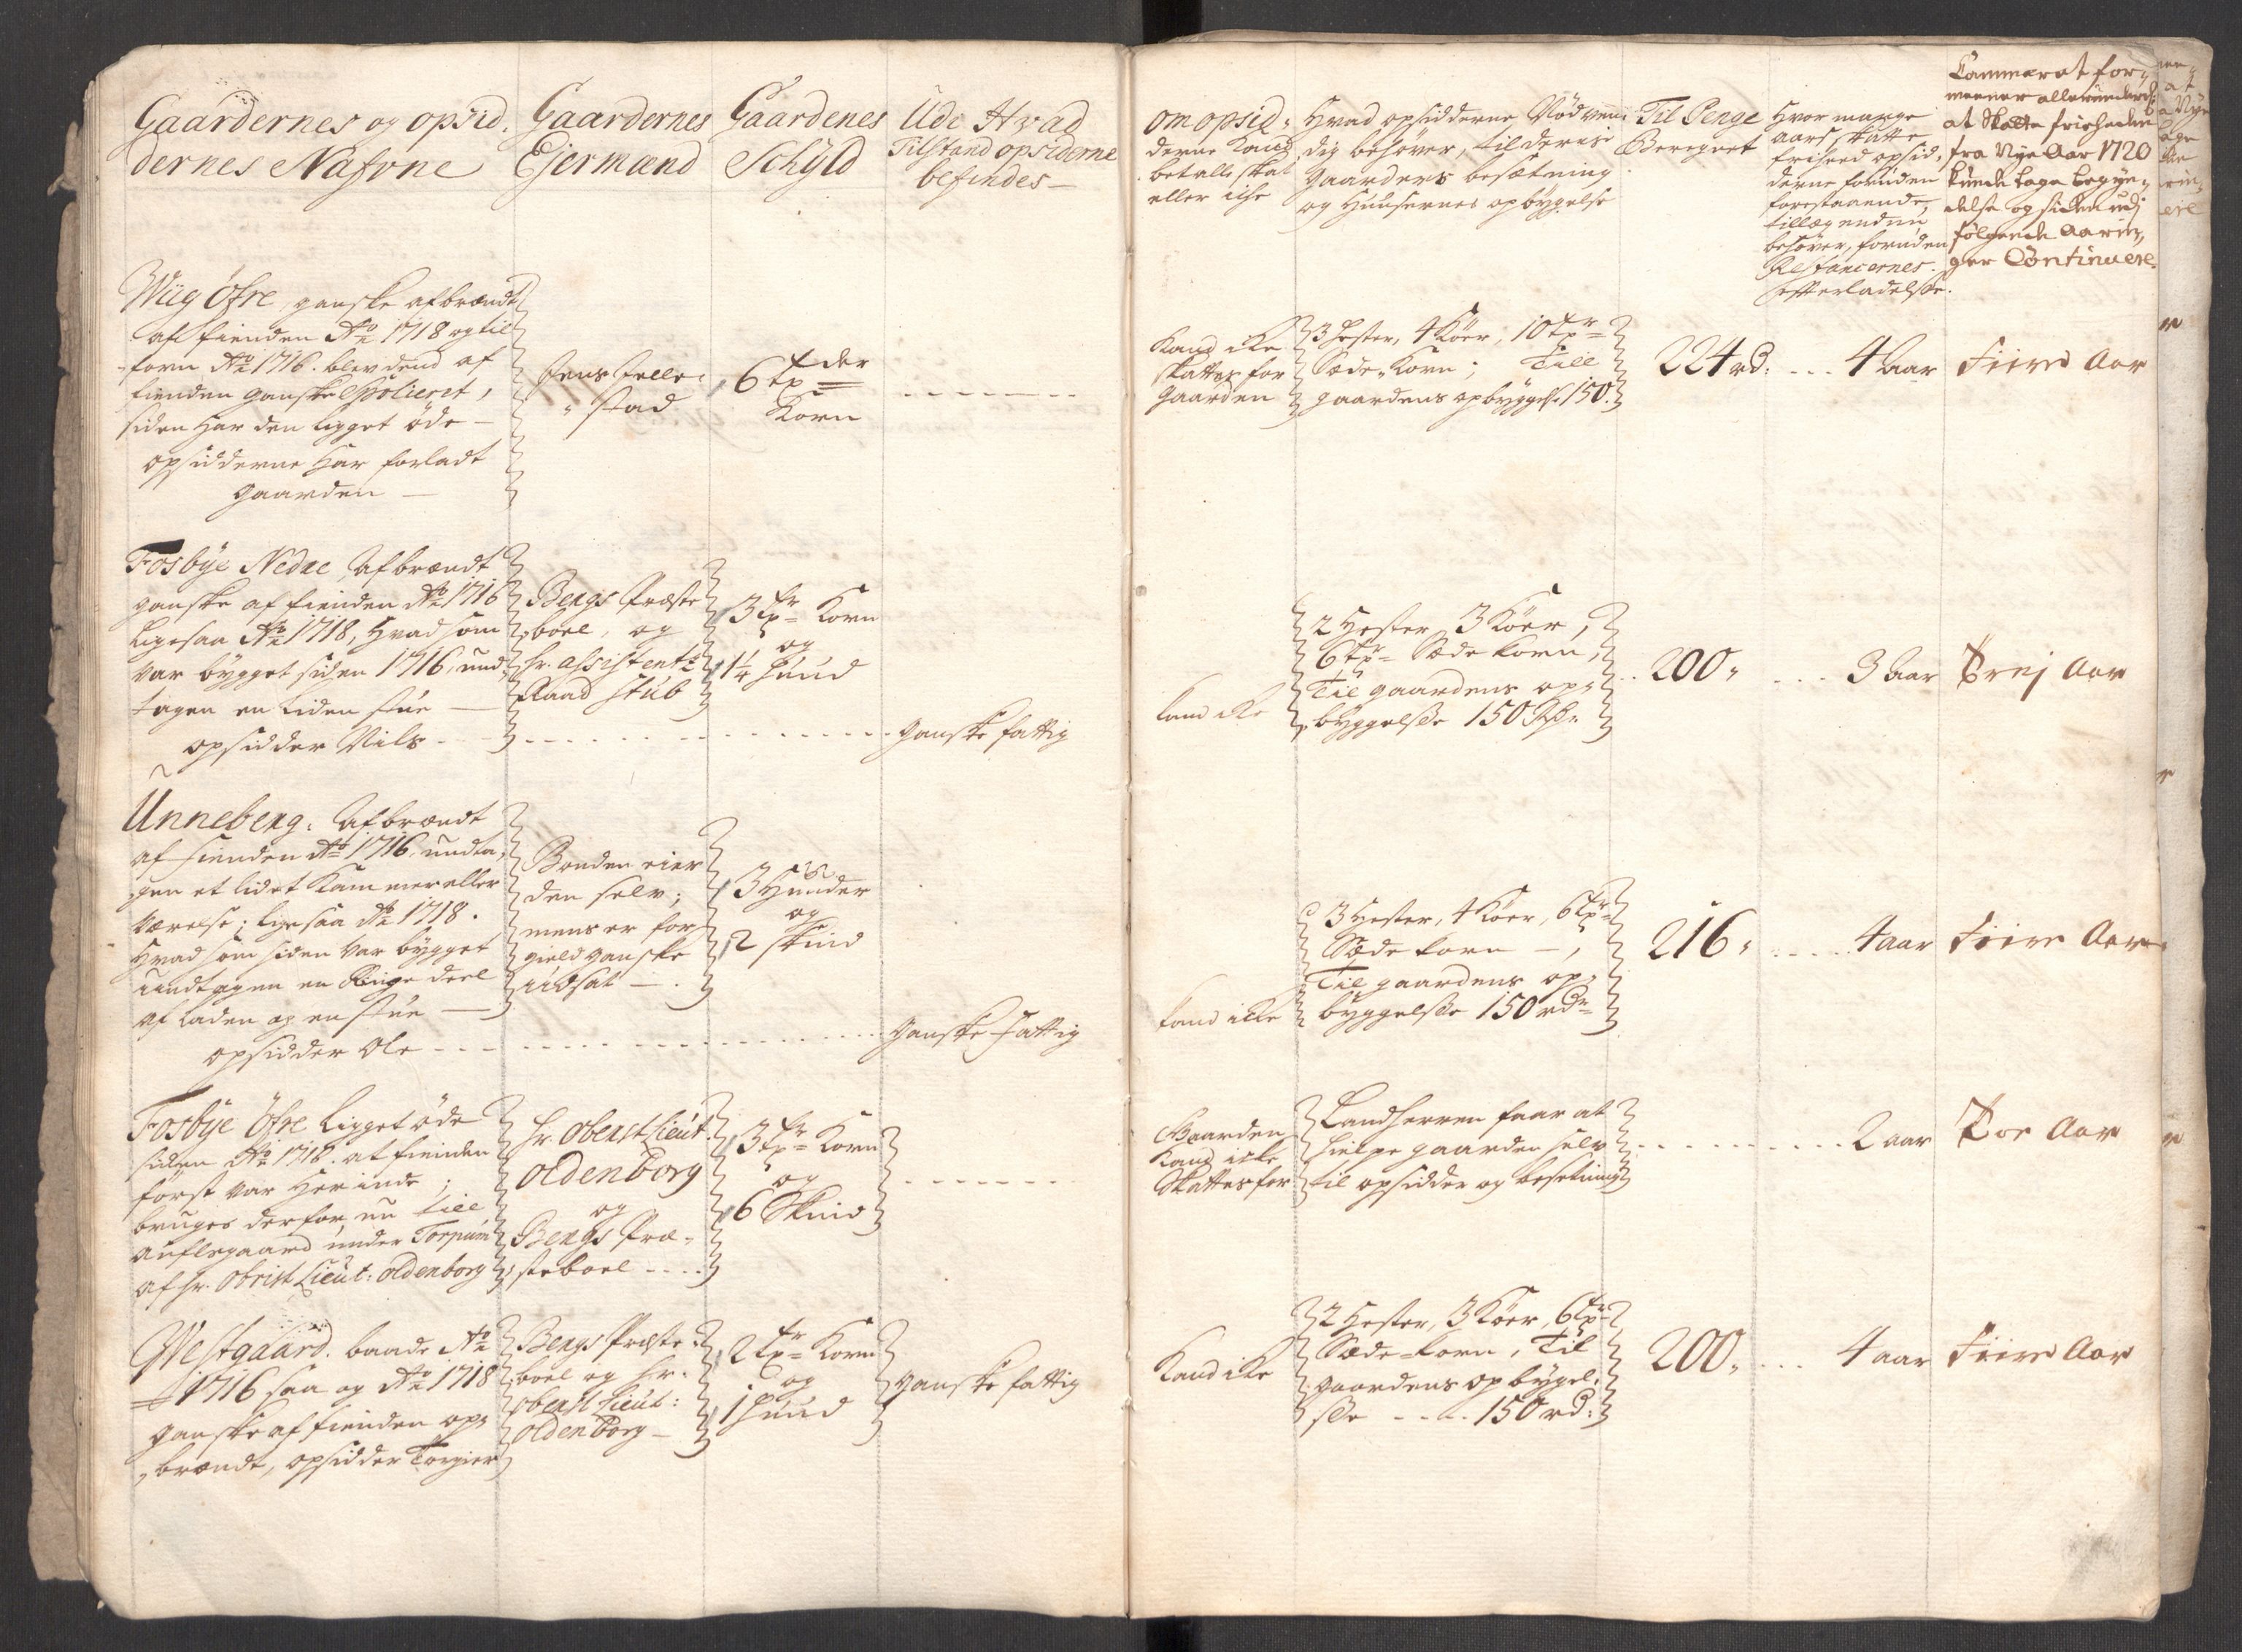 Gaardernes og opsid,
dernes Nafvne
Gaardernes
Ejermænd
Gaardenes
Schÿld
Udi Hvad
Tilstand opsiderne
befindes
om opsid,
derne kand
betalle skat
eller icke
Hvad opsidderne Nødven,
dig behöver, til deris
Gaarders besætning
og Huusernes opbÿgelse
Til Penge
Beregnet
Hvor mange
aars skatte
friheed opsid,
derne foruden
forestaaende,
tillægendiu
behöver, foruden
Restancernes
Efterladelse.
Cammeret for,
meener allerunderd:
at Skatte friheden
fra Nye Aar 1720
kunde tage begÿn,
delse og siden udj
følgende Aarin,
ger Continuere.
Wiig Öfre ganske afbrændt
af fienden Ao 1718 og til
forn Ao 1716. blev dend af
fienden ganske Spolieret,
siden har den ligget öde
opsidderne har forladt
gaarden
Jens Jelle,
stad
6 tp
Korn
Kand ike
skattes for
Gaarden
3 Hester, 4 Köer, 10 tpr
Sæde Korn; Till
gaardens opbÿggelse 150.
224 rd. 4 Aar Fiire Aar
Fosbÿe Nedre, Afbrændt
ganske af fienden Ao 1716
Ligesaa Ao 1718, Hvad som
var bÿgget siden 1716, und,
tagen en Liden stue
opsidder Nils
Bergs Præste
boel, og
hr. assistentz
Raad Stub
3 tpr Korn
og
1 1/4 Huud
ganske fattig
kand ike
2 Hester, 3 Köer,
6 tpr Sæde korn,
Til gaardens op,
bÿggelse 150 Rdr
200 3 Aar Trej Aar
Unneberg. Afbrændt
af fienden Ao 1716, undta,
gen et lidet Kammer eller
værelse; ligesaa Ao 1718.
Hvad som siden var bÿgget
undtagen en Ringe deel
af laden og en stue
opsidder Ole
Bonden eier
den selv;
mens er for
gield ganske
uudsat
3 Huuder
og
2 skind
ganske fattig
kand icke
3 Hester, 4 Köer, 6 tpr
Sæde korn
Til gaardens op,
bÿggelse 150 rdr
216 4 aar Fiire Aar
Fosbÿe Öfre Ligget öde
siden Ao 1716. at fienden
först var her inde;
bruges derfor nu till
auflsgaard under Torpum
af hr. Obrist Lieut: oldenborg
hr. Oberst Lieut.
oldenborg
og
Bergs Præ,
steboel
3 tpr Korn
og
6 Skind
Gaarden
kand icke
Skattes for
Landherren faar at
hielpe gaarden selv
til opsidder og besetning
2 aar Toe Aar
Westgaard. baade Ao
1716 saa og Ao 1718
ganske af fienden op,
brændt, opsidder Torgier
Bergs Præste,
boel og hr.
oberst Lieut:
oldenborg
2 tpr Korn
og
1 Huud
ganske fattig
Kand ike
2 Hester, 3 Köer, 6 tpr
Sæde korn, Til
gaardens opbÿgel,
se 150 rd:
200 4 aar Fiire Aar